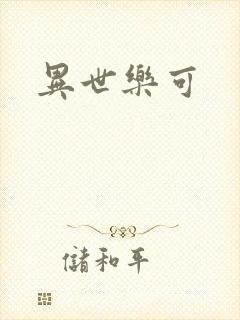 異世樂可
儲和平